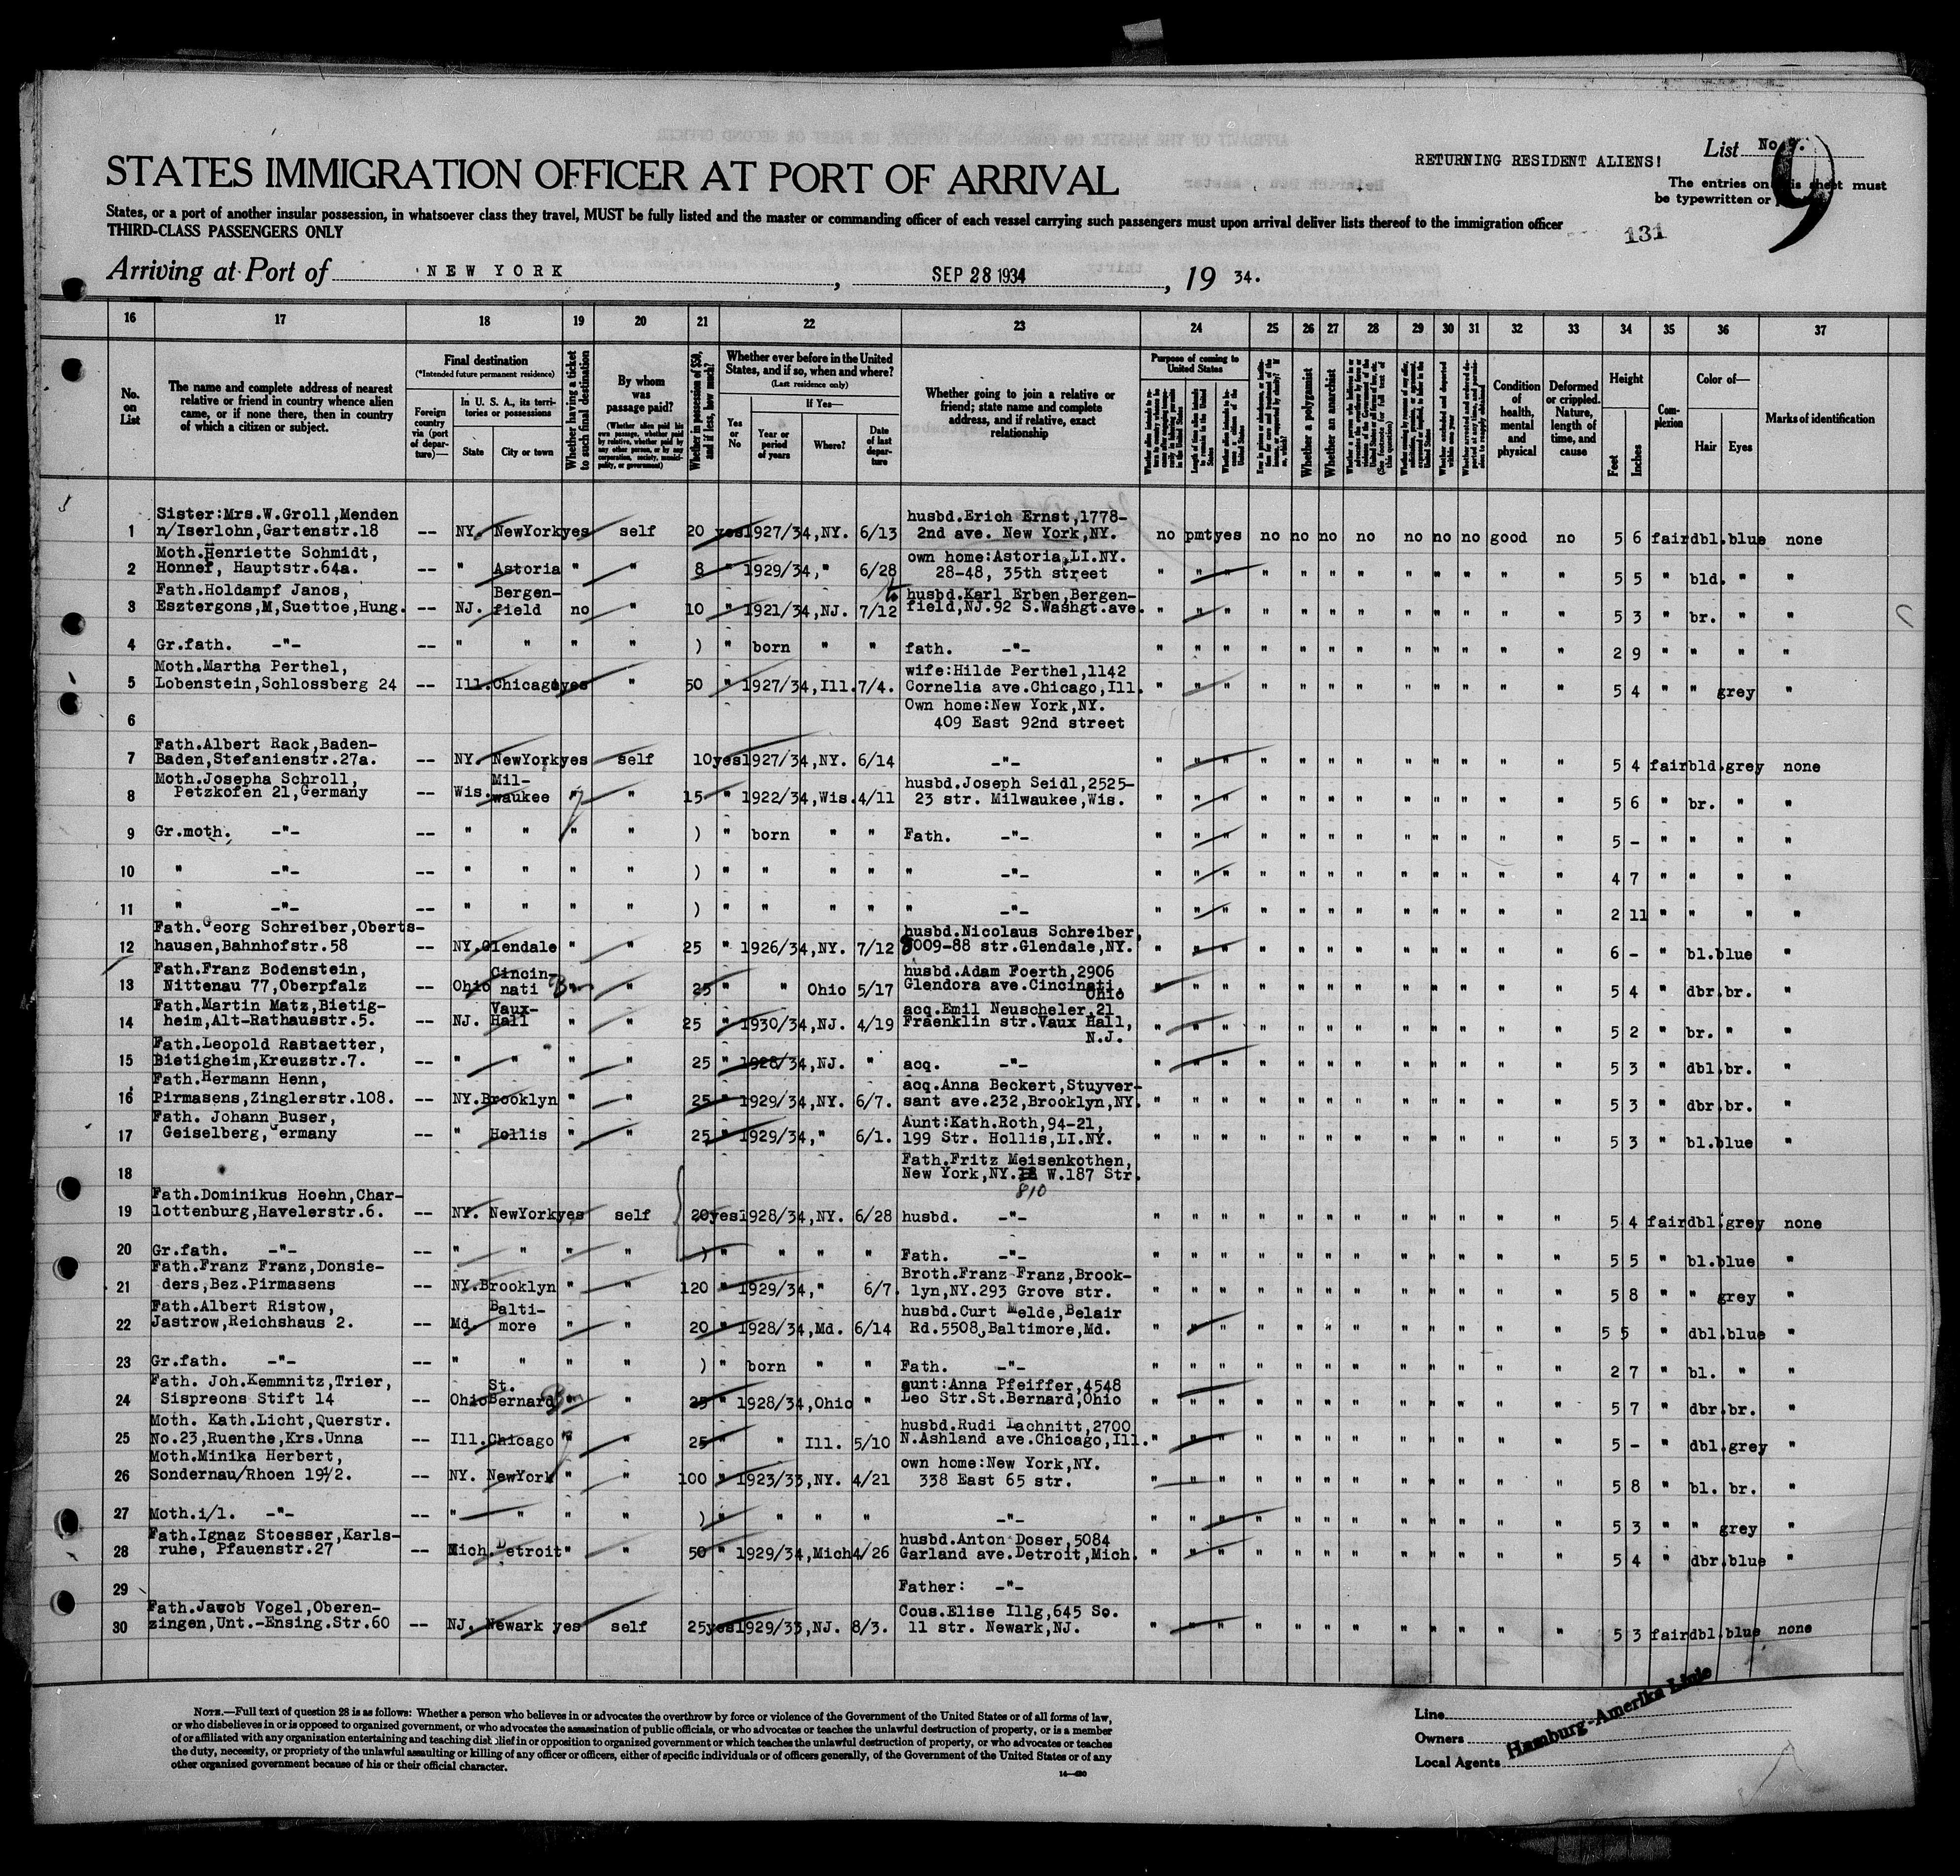 STATES IMMIGRATION OFFICER AT PORT OF ARRIVAL
RETURNING RESIDENT ALIENS!
List No. 9.
9
The entries on this sheet must
be typewritten or
States, or a port of another insular possession, in whatsoever class they travel, MUST be fully listed and the master or commanding officer of each vessel carrying such passengers must upon arrival deliver lists thereof to the immigration officer
THIRD-CLASS PASSENGERS ONLY
131
Arriving at Port of NEW YORK, SEP 28 1934, 19 34.
16 17 18 19 20 21 22 23 24 25 26 27 28 29 30 31 32 33 34 35 36 37
No. on List
The name and complete address of nearest relative or friend in country whence alien came, or if none there, then in country of which a citizen or subject.
Final destination
(*Intended future permanent residence)
Foreign country via (port of departure)—
In U. S. A., its territories or possessions
State
City or town
Whether having a ticket to such final destination
By whom was passage paid?
(Whether alien paid his own passage, whether paid by relative, whether paid by any other person, or by any corporation, society, municipality, or government)
Whether in possession of $50, and if less, how much?
Whether ever before in the United States, and if so, when and where?
(Last residence only)
Yes or No
If Yes—
Year or period of years
Where?
Date of last departure
Whether going to join a relative or friend; state name and complete address, and if relative, exact relationship
Purpose of coming to United States
Whether a polygamist
Whether an anarchist
Condition of health, mental and physical
Deformed or crippled. Nature, length of time, and cause
Height
Feet
Inches
Complexion
Color of—
Hair
Eyes
Marks of identification
Sister:Mrs.W.Groll,Menden husbd.Erich Ernst,1778-
1 n/Iserlohn,Gartenstr.18 -- NY. NewYork yes self 20 yes 1927/34,NY. 6/13 2nd ave. New York,NY. no pmt yes no no no no no no no good no 5 6 fair dbl. blue none
Moth.Henriette Schmidt, own home:Astoria,LI.NY.
2 Honnef, Hauptstr.64a. -- " Astoria " " 8 " 1929/34," 6/28 28-48, 35th street " " " " " " " " " " " " 5 5 " bld. " "
Fath.Holdampf Janos, Bergen- husbd.Karl Erben,Bergen-
3 Esztergons,M,Suettoe,Hung. -- NJ. field no " 10 " 1921/34,NJ. 7/12 field,NJ.92 S.Washgt.ave. " " " " " " " " " " " " 5 3 " br. " "
4 Gr.fath. -"- -- " " " " ) " born " " fath. -"- " " " " " " " " " " " " 2 9 " " " "
Moth.Martha Perthel, wife:Hilde Perthel,1142
5 Lobenstein,Schlossberg 24 -- Ill. Chicago yes " 50 " 1927/34,Ill. 7/4. Cornelia ave.Chicago,Ill. " " " " " " " " " " " " 5 4 " " grey "
Own home:New York,NY.
6 409 East 92nd street
Fath.Albert Rack,Baden-
7 Baden,Stefanienstr.27a. -- NY. NewYork yes self 10 yes 1927/34,NY. 6/14 -"- " " " " " " " " " " " " 5 4 fair bld. grey none
Moth.Josepha Schroll, Mil- husbd.Joseph Seidl,2525-
8 Petzkofen 21,Germany -- Wis. waukee " " 15 " 1922/34,Wis. 4/11 23 str. Milwaukee,Wis. " " " " " " " " " " " " 5 6 " br. " "
9 Gr.moth. -"- -- " " " " ) " born " " Father. -"- " " " " " " " " " " " " 5 - " " " "
10 " -"- -- " " " " ) " " " " " -"- " " " " " " " " " " " " 4 7 " " " "
11 " -"- -- " " " " ) " " " " " -"- " " " " " " " " " " " " 2 11 " " " "
Fath.Georg Schreiber,Oberts- husbd.Nicolaus Schreiber,
12 hausen,Bahnhofstr.58 -- NY. Glendale " " 25 " 1926/34,NY. 7/12 8009-88 str.Glendale,NY. " " " " " " " " " " " " 6 - " bl. blue "
Fath.Franz Bodenstein, Cincin- husbd.Adam Foerth,2906
13 Nittenau 77,Oberpfalz -- Ohio nati " 25 " " Ohio 5/17 Glendora ave.Cincinati, Ohio " " " " " " " " " " " " 5 4 " dbr. br. "
Fath.Martin Matz,Bietig- Vaux- acq.Emil Neuscheler,21
14 heim,Alt-Rathausstr.5. -- NJ. Hall " " 25 " 1930/34,NJ. 4/19 Fraenklin str.Vaux Hall, N.J. " " " " " " " " " " " " 5 2 " br. " "
Fath.Leopold Rastaetter,
15 Bietigheim,Kreuzstr.7. -- " " " " 25 " 1928/34,NJ. " acq. -"- " " " " " " " " " " " " 5 3 " dbl. br. "
Fath.Hermann Henn, acq.Anna Beckert,Stuyver-
16 Pirmasens,Zinglerstr.108. -- NY. Brooklyn " " 25 " 1929/34,NY. 6/7. sant ave.232,Brooklyn,NY. " " " " " " " " " " " " 5 3 " dbr. br. "
Fath. Johann Buser, Aunt:Kath.Roth,94-21,
17 Geiselberg,Germany -- " Hollis " " 25 " 1929/34," 6/1. 199 Str. Hollis,LI.NY. " " " " " " " " " " " " 5 3 " bl. blue "
Fath.Fritz Meisenkothen,
18 New York,NY. W.187 Str.
810
Fath.Dominikus Hoehn,Char-
19 lottenburg,Havelerstr.6. -- NY. NewYork yes self 20 yes 1928/34,NY. 6/28 husbd. -"- " " " " " " " " " " " " 5 4 fair dbl. grey none
20 Gr.fath. -"- -- " " " " ) " " " " Fath. -"- " " " " " " " " " " " " 5 5 " bl. blue "
Fath.Franz Franz,Donsie- Broth.Franz Franz,Brook-
21 ders,Bez.Pirmasens -- NY. Brooklyn " " 120 " 1929/34," 6/7. lyn,NY.293 Grove str. " " " " " " " " " " " " 5 8 " " grey "
Fath.Albert Ristow, Balti- husbd.Curt Melde,Belair
22 Jastrow,Reichshaus 2. -- Md. more " " 20 " 1928/34,Md. 6/14 Rd.5508,Baltimore,Md. " " " " " " " " " " " " 5 5 " dbl. blue "
23 Gr.fath. -"- -- " " " " ) " born " " Fath. -"- " " " " " " " " " " " " 2 7 " bl. " "
Fath. Joh.Kemmnitz,Trier, St. aunt:Anna Pfeiffer,4548
24 Sispreons Stift 14 -- Ohio Bernard " " 25 " 1928/34,Ohio " Leo Str.St.Bernard,Ohio " " " " " " " " " " " " 5 7 " dbr. br. "
Moth. Kath.Licht,Querstr. husbd.Rudi Lachnitt,2700
25 No.23,Ruenthe,Krs.Unna -- Ill. Chicago " " 25 " " Ill. 5/10 N.Ashland ave.Chicago,Ill. " " " " " " " " " " " " 5 - " dbl. grey "
Moth.Minika Herbert, own home:New York,NY.
26 Sondernau/Rhoen 19½. -- NY. NewYork " " 100 " 1923/33,NY. 4/21 338 East 65 str. " " " " " " " " " " " " 5 8 " bl. br. "
27 Moth.i/l. -"- -- " " " " ) " " " " -"- " " " " " " " " " " " " 5 3 " " grey "
Fath.Ignaz Stoesser,Karls- husbd.Anton Doser,5084
28 ruhe, Pfauenstr.27 -- Mich. Detroit " " 50 " 1929/34,Mich 4/26 Garland ave.Detroit,Mich. " " " " " " " " " " " " 5 4 " dbr. blue "
29 Father: -"-
Fath.Jacob Vogel,Oberen- Cous.Elise Illg,645 So.
30 zingen,Unt.-Ensing.Str.60 -- NJ. Newark yes self 25 yes 1929/33,NJ. 8/3. 11 str. Newark,NJ. " " " " " " " " " " " " 5 3 fair dbl. blue none
NOTE.—Full text of question 28 is as follows: Whether a person who believes in or advocates the overthrow by force or violence of the Government of the United States or of all forms of law,
or who disbelieves in or is opposed to organized government, or who advocates the assassination of public officials, or who advocates or teaches the unlawful destruction of property, or is a member
of or affiliated with any organization entertaining and teaching disbelief in or opposition to organized government or which teaches the unlawful destruction of property, or who advocates or teaches
the duty, necessity, or propriety of the unlawful assaulting or killing of any officer or officers, either of specific individuals or of officers generally, of the Government of the United States or of any
other organized government because of his or their official character.
14—430
Line
Owners
Local Agents
Hamburg-Amerika Linie